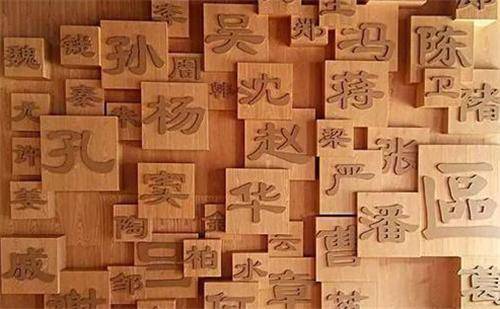 李
吴
郑
马
陈
魏
孙
周
秦
韩
沈
蒋
卫
褚
朱
杨
尤
许
孔
赵
梁
严
张
姜
窦
华
潘
區
陶
金
曹
戚
邹
柏
水
云
章
葛
谢
何